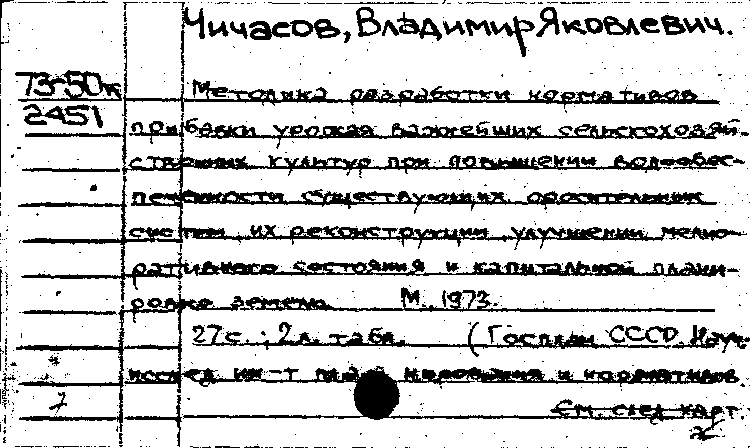 Чичасов, Владимир Яковлевич.
73-50к
Методика разработки нормативов
2451
прибавки урожая важнейших сельскохозяй-
ственных культур при повышении водообес-
печенности существующих оросительных
систем, их реконструкции, улучшении мелио-
ративного состояния и капитальной плани-
ровке земель. М., 1973.
27 с.; 2 л. табл. (Госплан СССР. Науч.-
исслед. ин-т план. и нормативов.
7
См. след. карт.